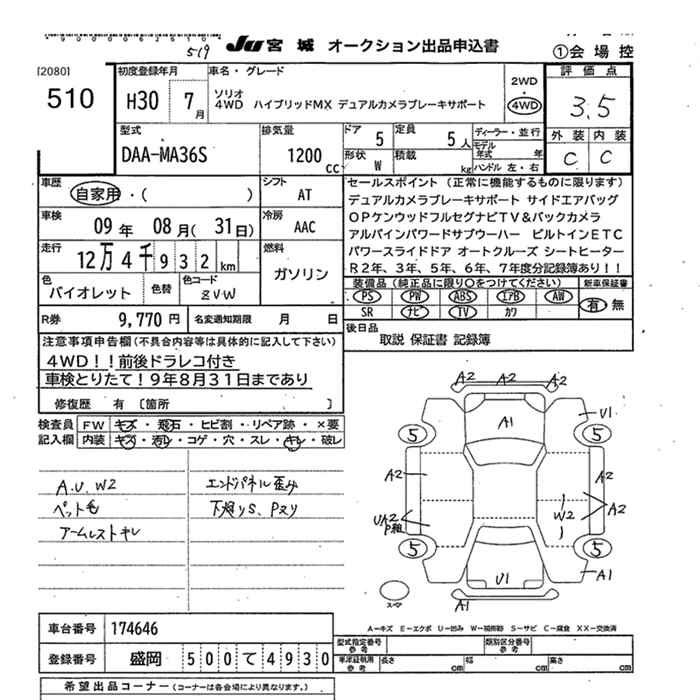 519
JU 宮城 オークション出品申込書
①会場控
[2080]
510
初度登録年月
H30 7月
車名・グレード
ソリオ
4WD ハイブリッドMX デュアルカメラブレーキサポート
2WD
4WD
評価点
3.5
外装 内装
C C
型式
DAA-MA36S
排気量
1200 cc
ドア 5
定員 5人
形状 W
積載 kg
ディーラー・並行
モデル年式 年
ハンドル 左・右
車歴
自家用・( )
シフト
AT
車検
09年 08月(31日)
冷房
AAC
走行
12万4千932km
燃料
ガソリン
色
バイオレット
色替
色コード
ZVW
R券 9,770円
名変通知期限 月 日
セールスポイント(正常に機能するものに限ります)
デュアルカメラブレーキサポート サイドエアバッグ
OPケンウッドフルセグナビTV&バックカメラ
アルパインパワードサブウーハー ビルトインETC
パワースライドドア オートクルーズ シートヒーター
R2年、3年、5年、6年、7年度分記録簿あり!!
装備品(純正品に限り○をつけてください)
新車保証書
PS PW ABS エアB AW
SR ナビ TV カワ
有 無
後日品
取説 保証書 記録簿
注意事項申告欄(不具合内容等は具体的に記入して下さい)
4WD!!前後ドラレコ付き
車検とりたて!9年8月31日まであり
修復歴 有 [箇所 ]
検査員記入欄
FW キズ・飛石・ヒビ割・リペア跡・×要
内装 キズ・汚レ・コゲ・穴・スレ・キレ・破レ
A.U.W2
ペット毛
アームレストキレ
エンドパネル歪み
下廻りS、Pヌリ
A2 A2 A2
A1
U1
5 5
A2 A2
UA2
P粗
W2
A2
5 5
U1
A1
A1
スペア
A-キズ E-エクボ U-凹み W-補修跡 S-サビ C-腐食 XX-交換済
車台番号 174646
登録番号 盛岡 500て4930
型式指定番号 参考
類別区分番号 参考
車庫証明用 参考
長さ cm 幅 cm 高さ cm
希望出品コーナー(コーナーは各会場により異なります。)